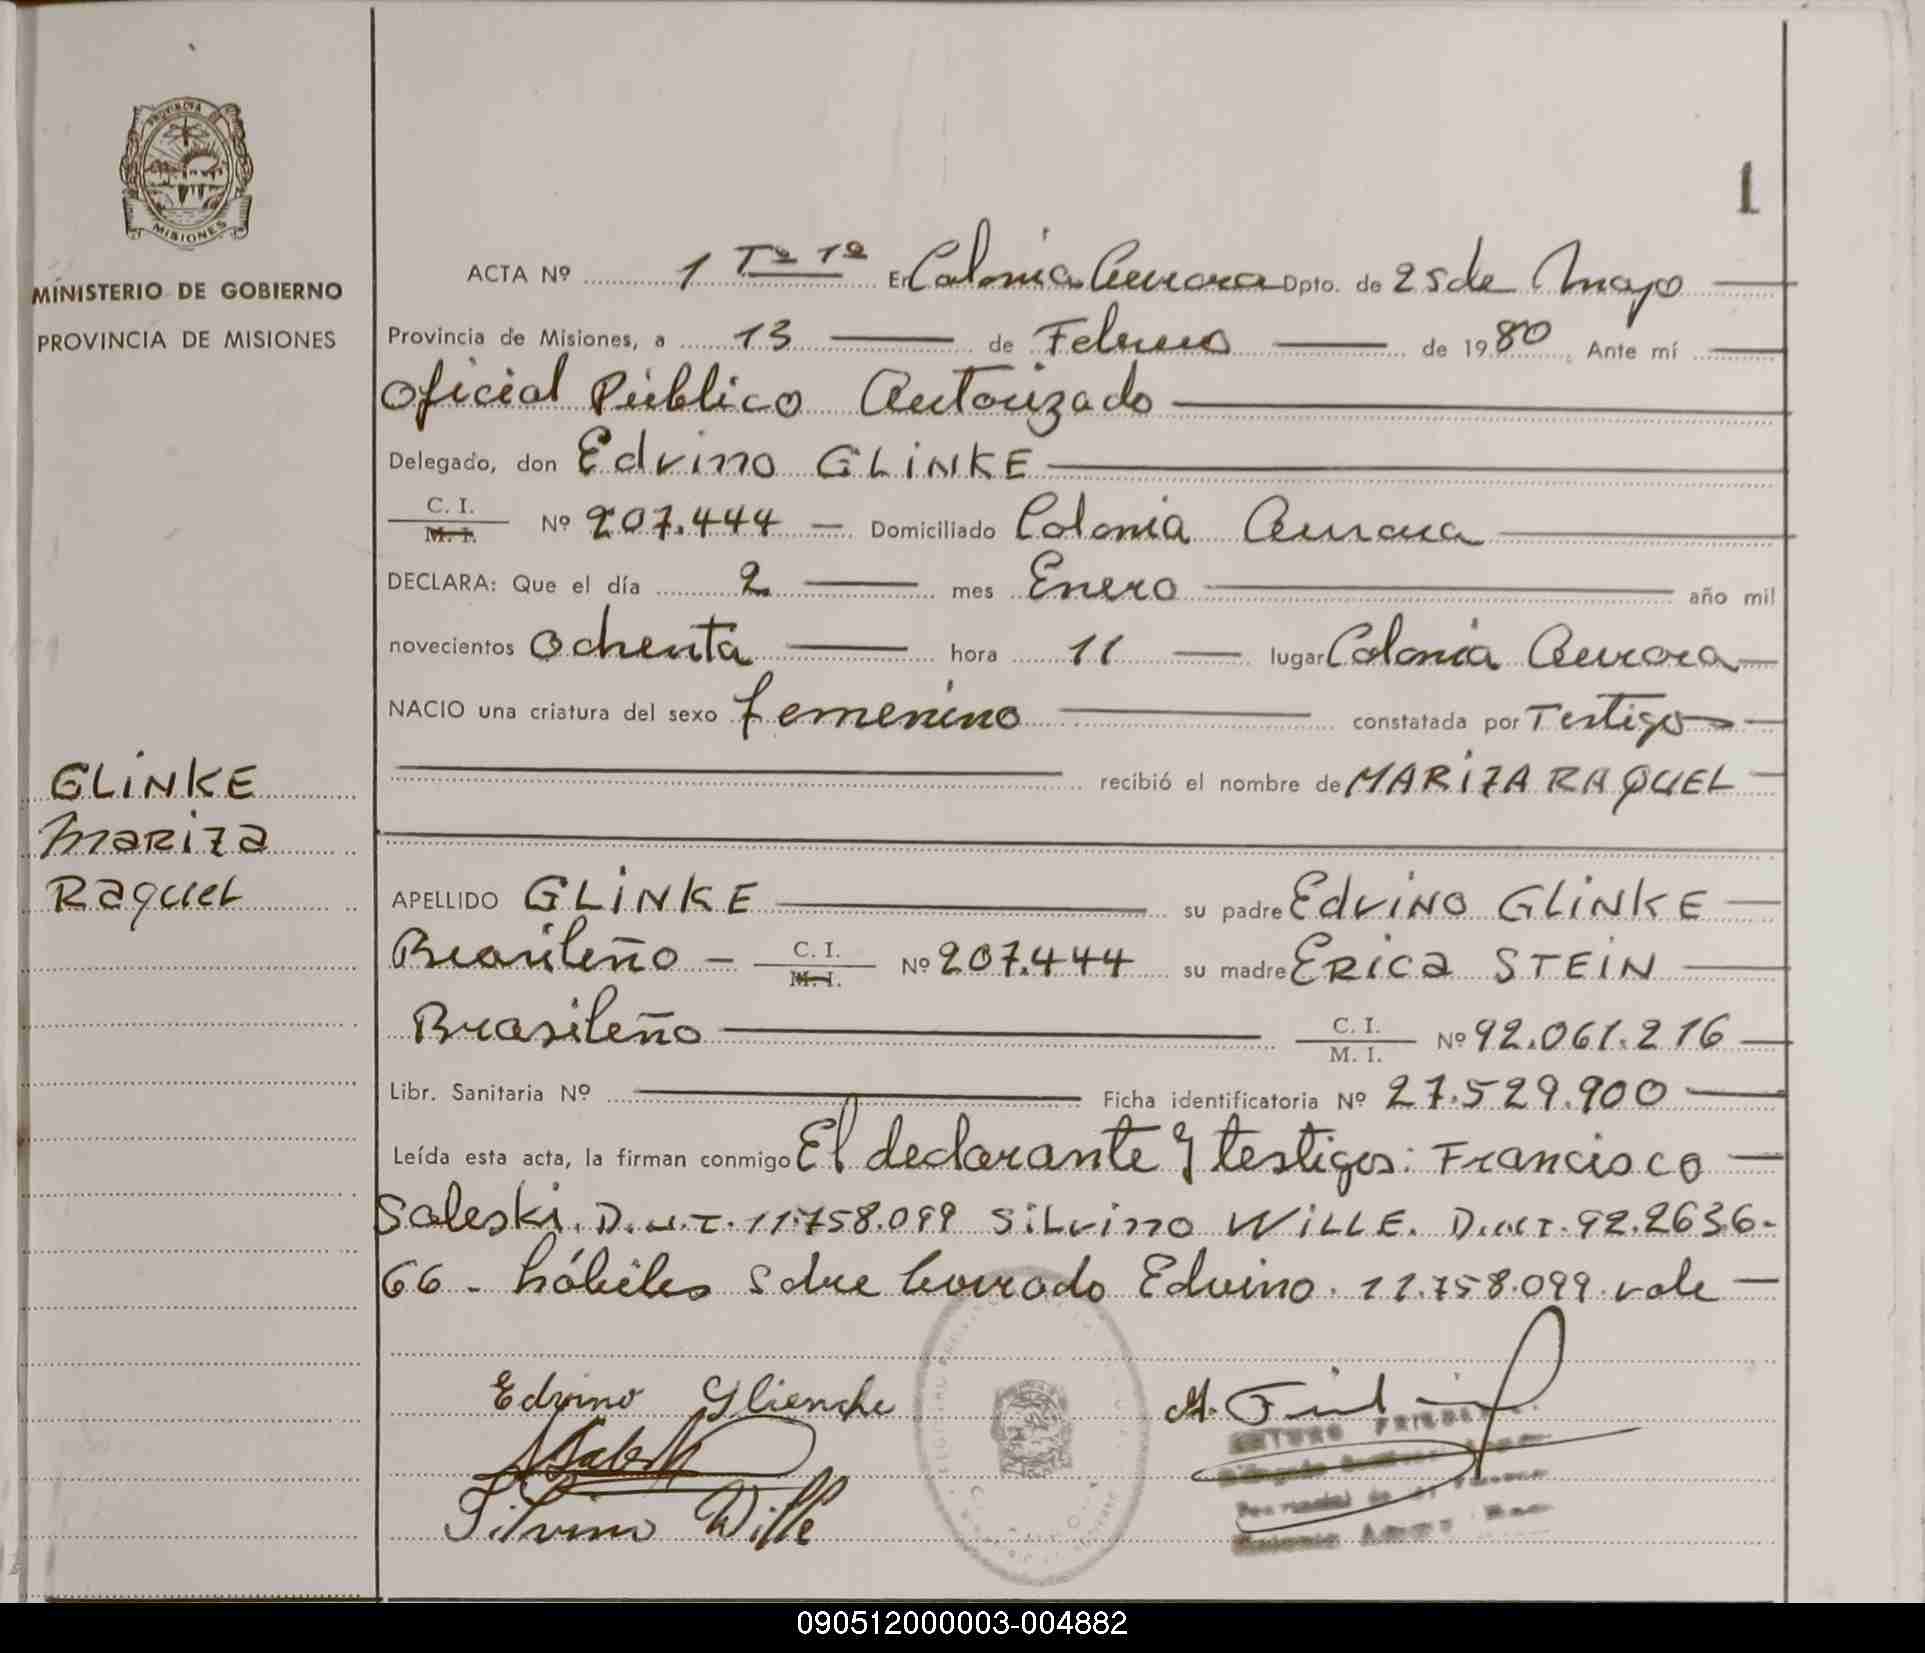 PROVINCIA DE
MISIONES
MINISTERIO DE GOBIERNO
PROVINCIA DE MISIONES
GLINKE
Mariza
Raquel
1
ACTA Nº 1 Tº 1º En Colonia Aurora Dpto. de 25 de Mayo
Provincia de Misiones, a 13 de Febrero de 1980 Ante mí
Oficial Público Autorizado
Delegado, don Edvino GLINKE
C. I.
M. I. Nº 207.444 Domiciliado Colonia Aurora
DECLARA: Que el día 2 mes Enero año mil
novecientos Ochenta hora 11 lugar Colonia Aurora
NACIO una criatura del sexo femenino constatada por Testigos
recibió el nombre de MARIZA RAQUEL
APELLIDO GLINKE su padre Edvino GLINKE
Brasileño - C. I.
M. I. Nº 207.444 su madre ERICA STEIN
Brasileño C. I.
M. I. Nº 92.061.216
Libr. Sanitaria Nº Ficha identificatoria Nº 27.529.900
Leída esta acta, la firman conmigo El declarante y testigos: Francisco
Saleski. D.N.I. 11.758.099 Silvino WILLE. D.N.I. 92.2636-
66 - hábiles sobre borrado Edvino. 11.758.099. vale
Edvino Glienche
Silvino Wille
ARTURO
090512000003-004882